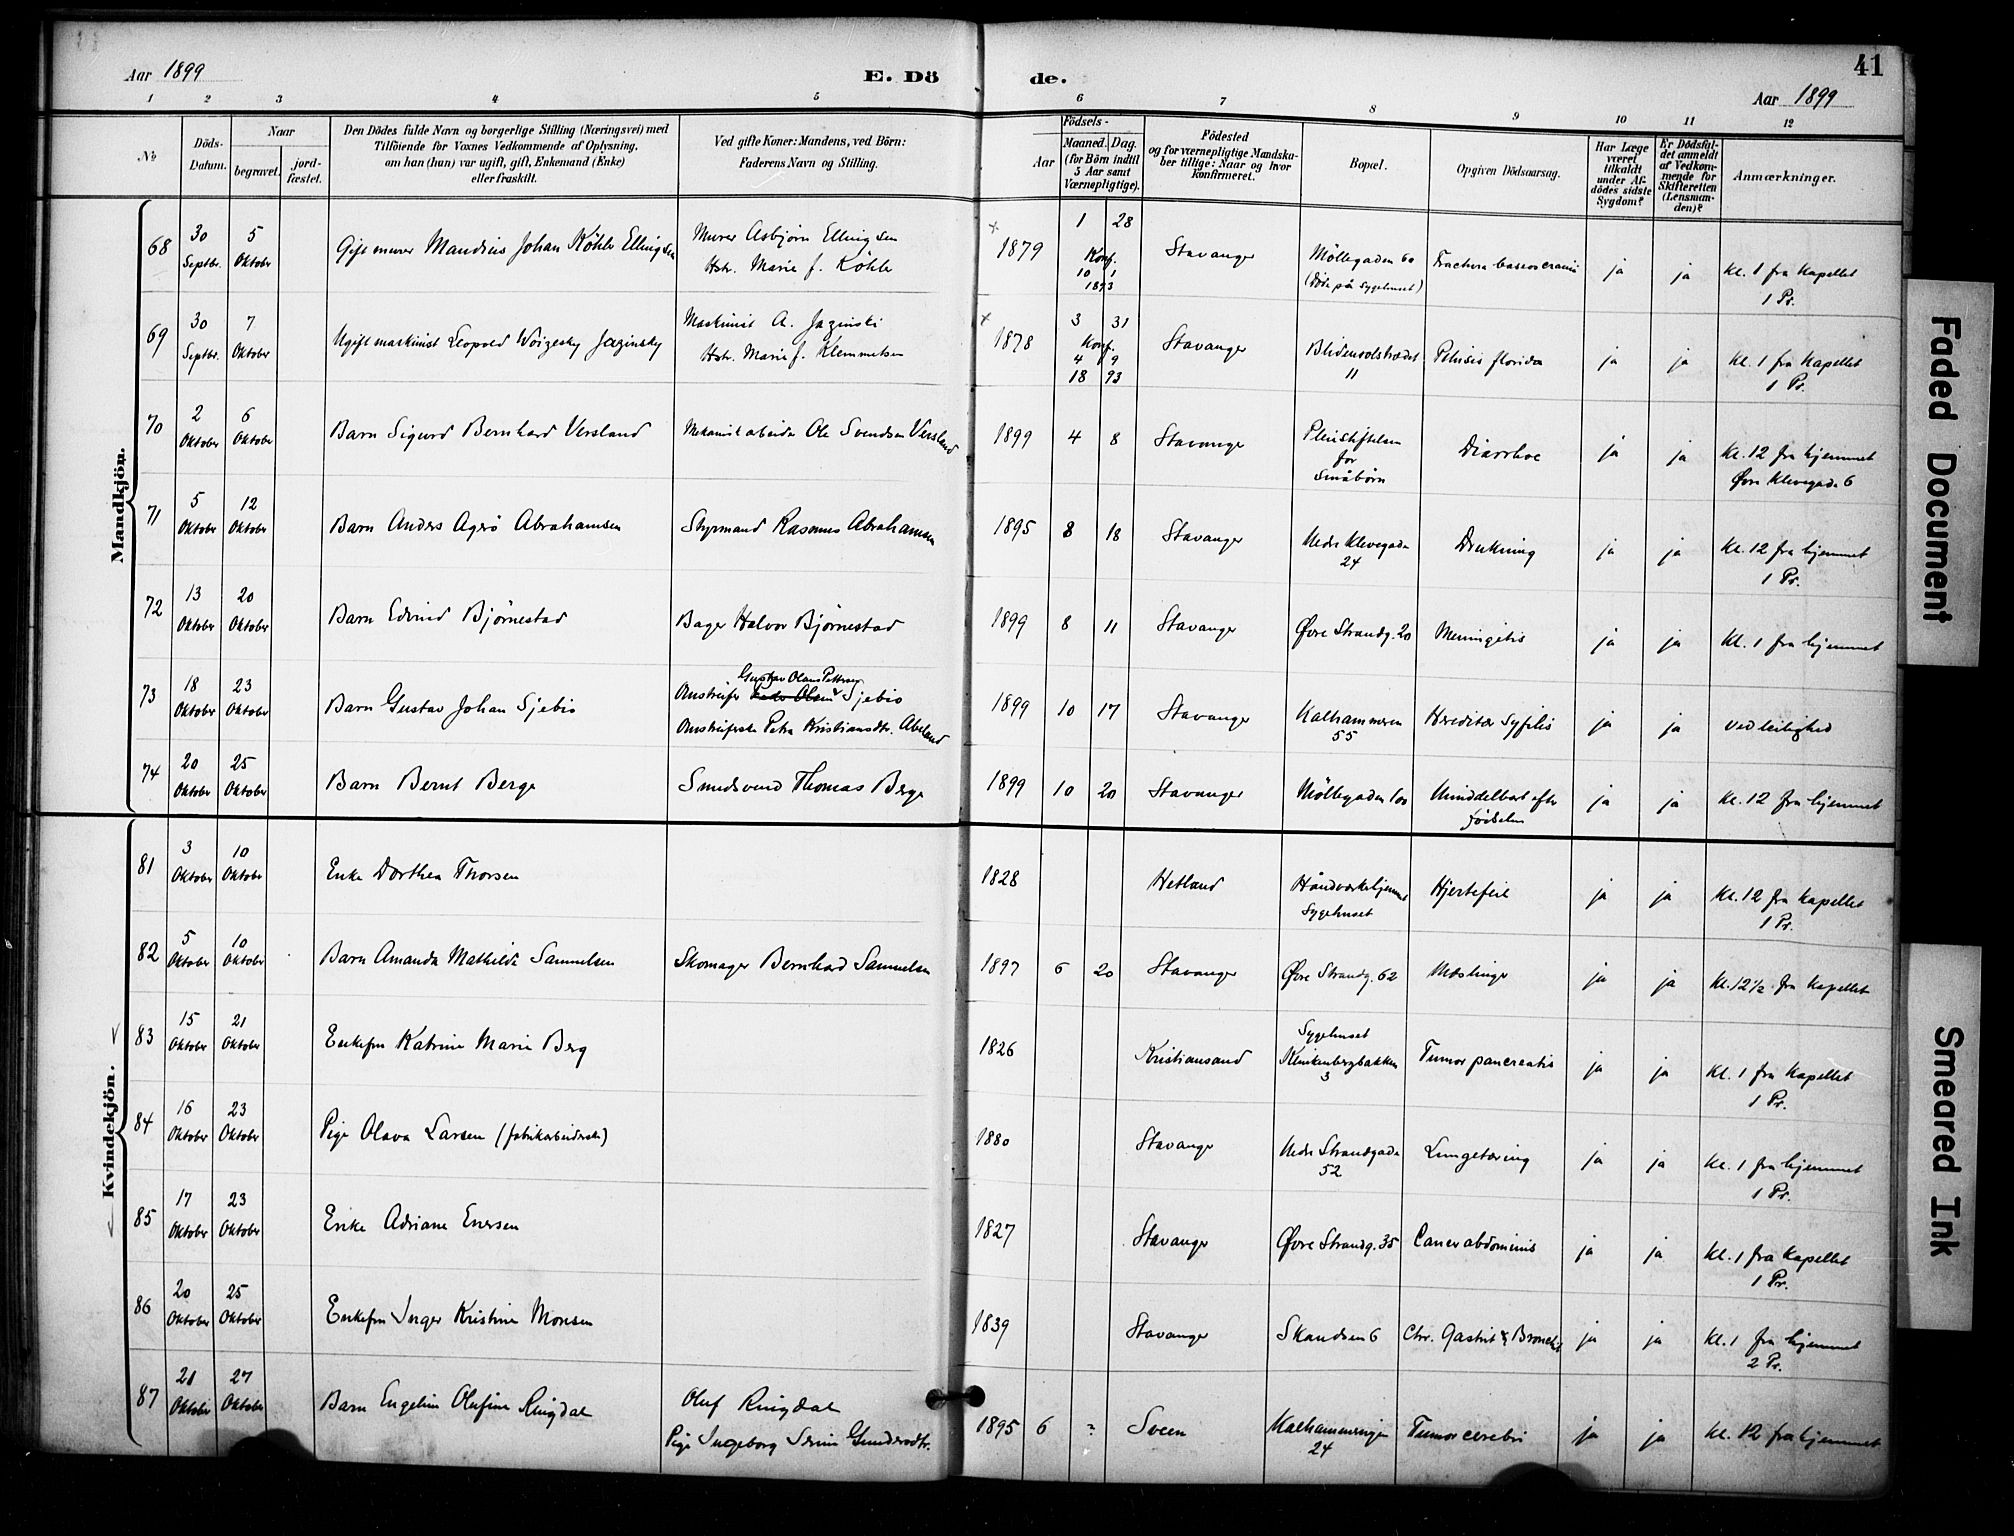 41
Aar 1899
E. Dö
de.
Aar 1899
1 2 3 4 5 6 7 8 9 10 11 12
No
Döds-Datum.
Naar
begravet.
jord-fæstet.
Den Dödes fulde Navn og borgerlige Stilling (Næringsvei) med
Tilföiende for Voxnes Vedkommende af Oplysning,
om han (hun) var ugift, gift, Enkemand (Enke)
eller fraskilt.
Ved gifte Koner: Mandens, ved Börn:
Faderens Navn og Stilling.
Födsels-
Aar
Maaned. Dag.
(for Börn indtil
5 Aar samt
Værnepligtige).
Födested
og for værnepligtige Mandska-
ber tillige: Naar og hvor
Konfirmeret.
Bopæl.
Opgiven Dödsaarsag.
Har Læge
været
tilkaldt
under Af-
dödes sidste
Sygdom?
Er Dödsfal-
det anmeldt
af Vedkom-
mende for
Skifteretten
(Lensman-
den)?
Anmærkninger.
Mandkjön.
68 30 Septbr. 5 Oktober Gift murer Johan Köhler Ellingsen Murer Asbjørn Ellingsen
Hstr. Marie f. Köhler
1879 1 28 Konf. 10 1 1893 Stavanger Möllegaden 60
(Døde på Sygehuset) Fractura baseos cranii ja ja Kl. 1 fra Kapellet
1 Pr.
69 30 Septbr. 7 Oktober Ugift maskinist Leopold Jazinsky Maskinist A. Jazinski
Hstr. Marie f. Klemmetsen
1878 3 31 Konf. 4 9 18 93 Stavanger 11 Phtisis florida ja ja Kl. 1 fra Kapellet
1 Pr.
70 2 Oktober 6 Oktober Barn Sigurd Bernhard Versland Mekanisk arbeider Ole Svendsen Versland
1899 4 8 Stavanger Pleiestiftelsen
for
Småbørn Diarrhoe ja ja Kl. 12 fra hjemmet
Øvre Klevegade 6
71 5 Oktober 12 Oktober Barn Anders Agerø Abrahamsen Styrmand Rasmus Abrahamsen
1895 8 18 Stavanger Nedre Klevegade
24 Drukning ja ja Kl. 12 fra hjemmet
1 Pr.
72 13 Oktober 20 Oktober Barn Edvind Bjørnestad Bager Halvor Bjørnestad
1899 8 11 Stavanger Øvre Strandg. 20 Meningitis ja ja Kl. 1 fra hjemmet
73 18 Oktober 23 Oktober Barn Gustav Johan Sjebio Gustav Olaus Pettersen
Omstreifer Sjebio
Omstreiferske Petra Kristiansdtr. Abeland
1899 10 17 Stavanger Kalhammeren
55 Hereditær Syfilis ja ja Ved leilighed
74 20 Oktober 25 Oktober Barn Bernt Berge Smedsvend Thomas Berge
1899 10 20 Stavanger Möllegaden 100 Umiddelbart efter
Fødselen ja ja Kl. 12 fra hjemmet
Kvindekjön.
81 3 Oktober 10 Oktober Enke Dorthea Thorsen
1828 Hetland Håndværkerhjemmet
Sygehuset Hjertefeil ja ja Kl. 12 fra Kapellet
1 Pr.
82 5 Oktober 10 Oktober Barn Amanda Mathilde Samuelsen Skomager Bernhard Samuelsen
1897 6 20 Stavanger Øvre Strandg. 62 Mæslinger ja ja Kl. 12½ fra Kapellet
83 15 Oktober 21 Oktober Enkefru Katrine Marie Berg
1826 Kristiansand Sygehuset
Klinkenbergbakken
3 Tumor pancreatis ja ja Kl. 1 fra Kapellet
1 Pr.
84 16 Oktober 23 Oktober Pige Olava Larsen (fabrikarbeiderske)
1880 Stavanger Nedre Strandgade
52 Lungetæring ja ja Kl. 1 fra hjemmet
1 Pr.
85 17 Oktober 23 Oktober Enke Adriane Enersen
1827 Stavanger Øvre Strandg. 35 Cancer abdominis ja ja Kl. 1 fra Kapellet
1 Pr.
86 20 Oktober 25 Oktober Enkefru Inger Kristine Monsen
1839 Stavanger Skandsen 6 Chr. Gastrit & Bronchit ja ja Kl. 1 fra hjemmet
2 Pr.
87 21 Oktober 27 Oktober Barn Engeline Olufine Ringdal Oluf Ringdal
Pige Ingeborg Serine Gundersdtr.
1895 6 ? Sveen Kalhammeringen
24 Tumor cerebri ja ja Kl. 12 fra hjemmet
Faded Document
Smeared Ink